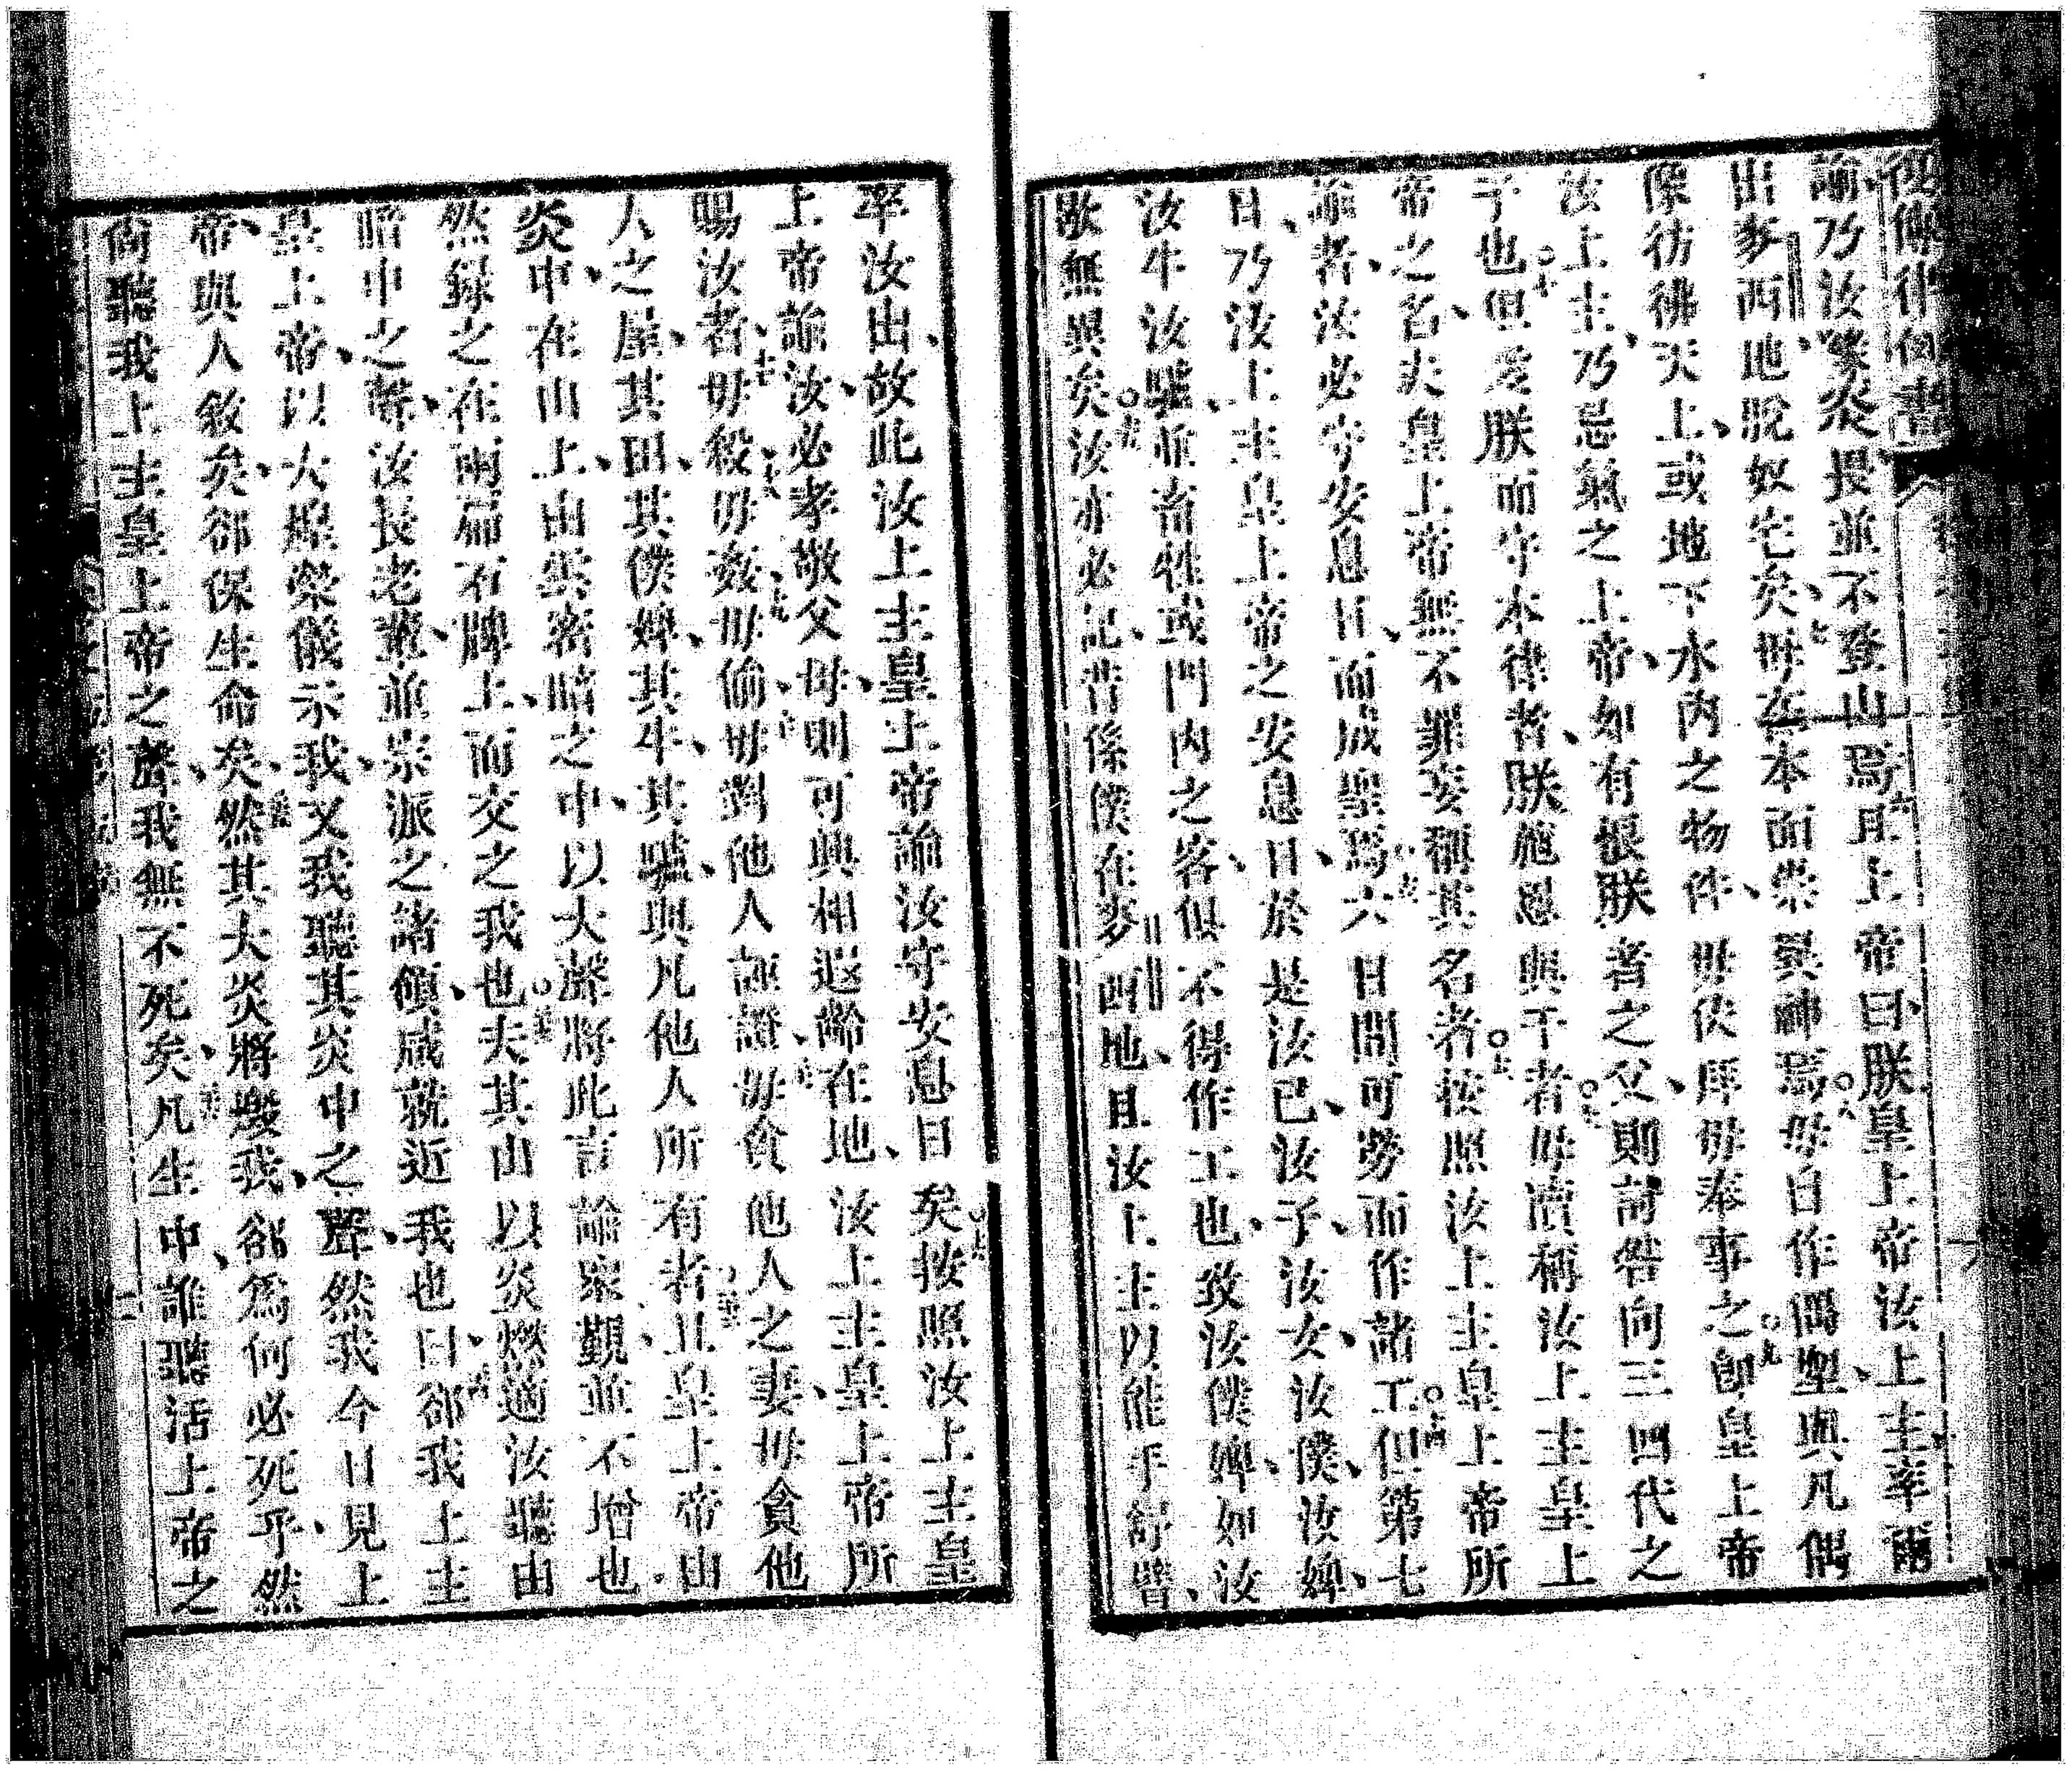 復傳律例書
諭乃汝等炎畏並不登山焉且上帝曰朕皇上帝汝上主率爾
出麥西地脫奴宅矣毋在本面崇異神焉毋自作偶塑與凡偶
像彷彿天上或地下水內之物件毋伏拜毋奉事之卽皇上帝
汝上主乃忌氣之上帝如有恨朕者之父則討咎向三四代之
子也但愛朕而守本律者朕施恩與千者毋瀆稱汝上主皇上
帝之名夫皇上帝無不罪妄稱其名者按照汝上主皇上帝所
諭者汝必守安息日而成聖焉六日間可勞而作諸工但第七
日乃汝上主皇上帝之安息日於是汝已汝子汝女汝僕汝婢
汝牛汝驢並畜牲或門內之客俱不得作工也致汝僕婢如汝
歇無異矣汝亦必記昔係僕在麥西地且汝上主以能手舒臂
率汝出故此汝上主皇上帝諭汝守安息日矣按照汝上主皇
上帝諭汝必孝敬父母則可興相遐齡在地汝上主皇上帝所
賜汝者毋殺毋姦毋偷毋對他人誣證毋貪他人之妻毋貪他
人之屋其田其僕婢其牛其驢與凡他人所有者且皇上帝由
炎中在山上由雲密暗之中以大聲將此言諭眾觀並不增也
然錄之在兩扇石牌上而交之我也夫其山以炎燃適汝聽由
暗中之聲汝長老輩並宗派之諸傾咸就近我也曰卻我上主
皇上帝以大煌榮儀示我又我聽其炎中之聲然我今日見上
帝與人敘矣卻保生命矣然其大炎將燬我卻為何必死乎然
尚聽我上主皇上帝之聲我無不死矣凡生中誰聽活上帝之